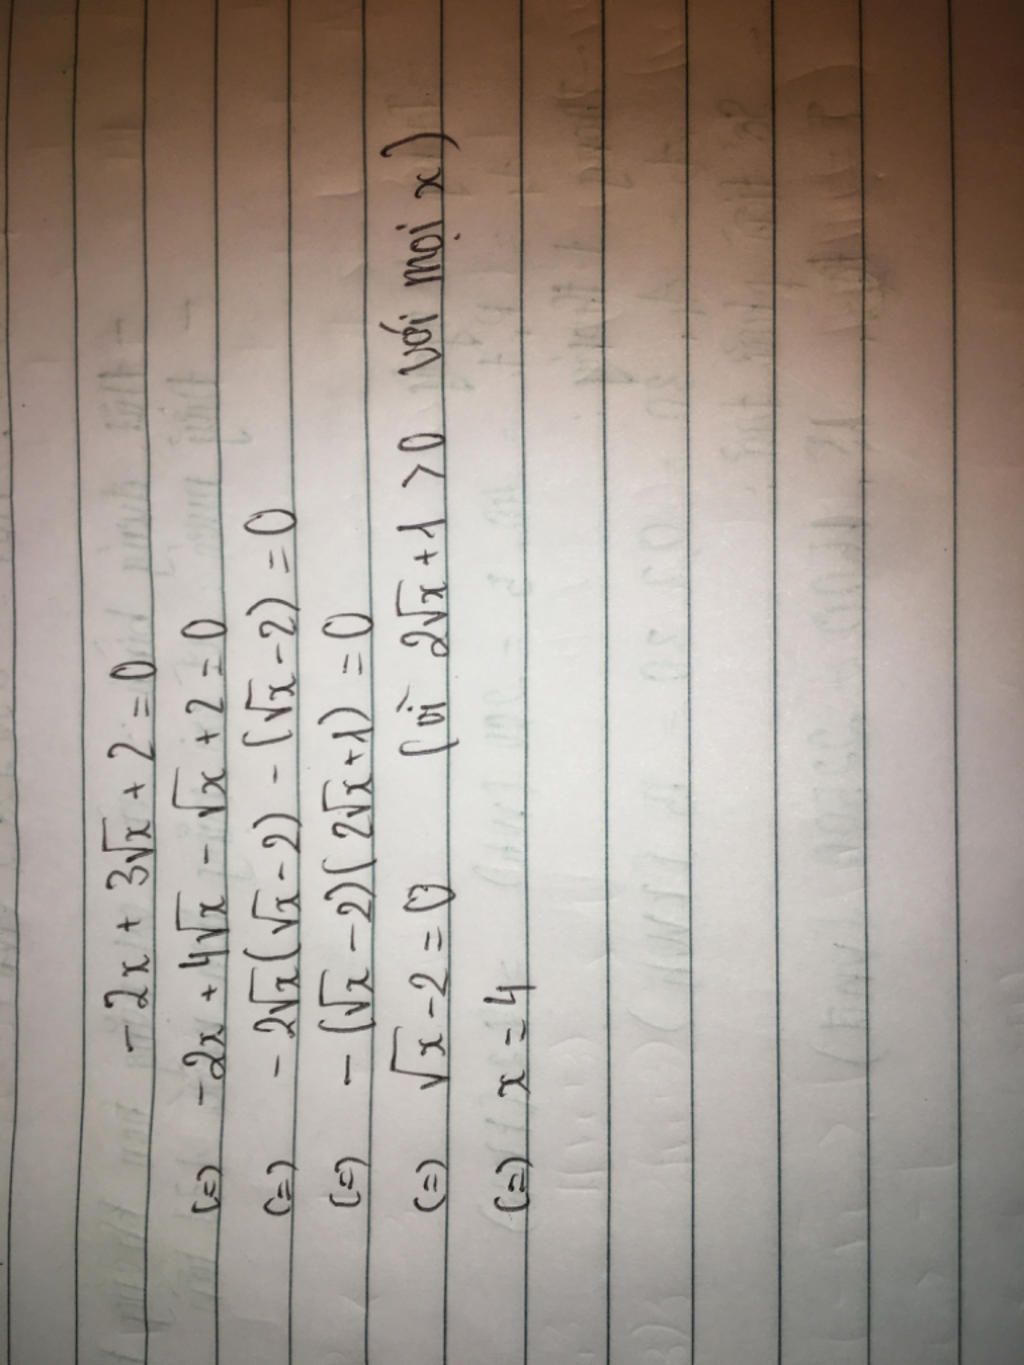 -2x + 3√x + 2 = 0
(=) -2x + 4√x - √x + 2 = 0
(=) -2√x(√x - 2) - (√x - 2) = 0
(=) -(√x - 2)(2√x + 1) = 0
(=) √x - 2 = 0 (vì 2√x + 1 > 0 với mọi x)
(=) x = 4